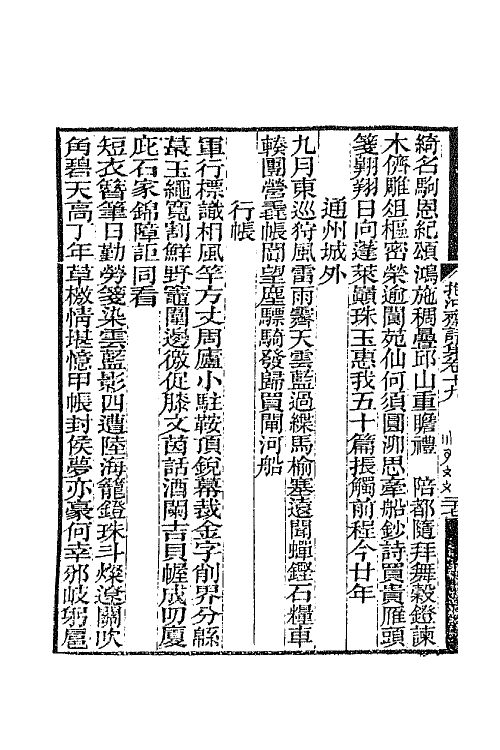 綺名駒恩紀頌鴻施稠疊邱山重瞻禮　陪都隨拜舞穀鐙諫
木儕雕俎樞密榮逾閬苑仙何須圓泖思牽船鈔詩買貴雁頭
箋翺翔日向蓬萊巔珠玉惠我五十篇振觸前程今廿年
通州城外
九月東巡狩風雷雨霽天雲藍過緤馬榆塞遠聞蟬鏗石糧車
轃團營毳帳闘望塵驃騎發歸買閘河船
行帳
軍行標識相風竿方丈周廬小駐鞍頂銳幕裁金字削界分緜
蕞玉繩寬割鮮野竈闢邊徼促膝文茵話酒闌吉貝幄成叨廈
庇石家錦障詎同看
短衣簪筆日勤勞箋染雲藍影四遭陸海籠鐙珠斗燦遼關吹
角碧天高丁年草檄情堪憶甲帳封侯夢亦豪何幸邠岐躬扈